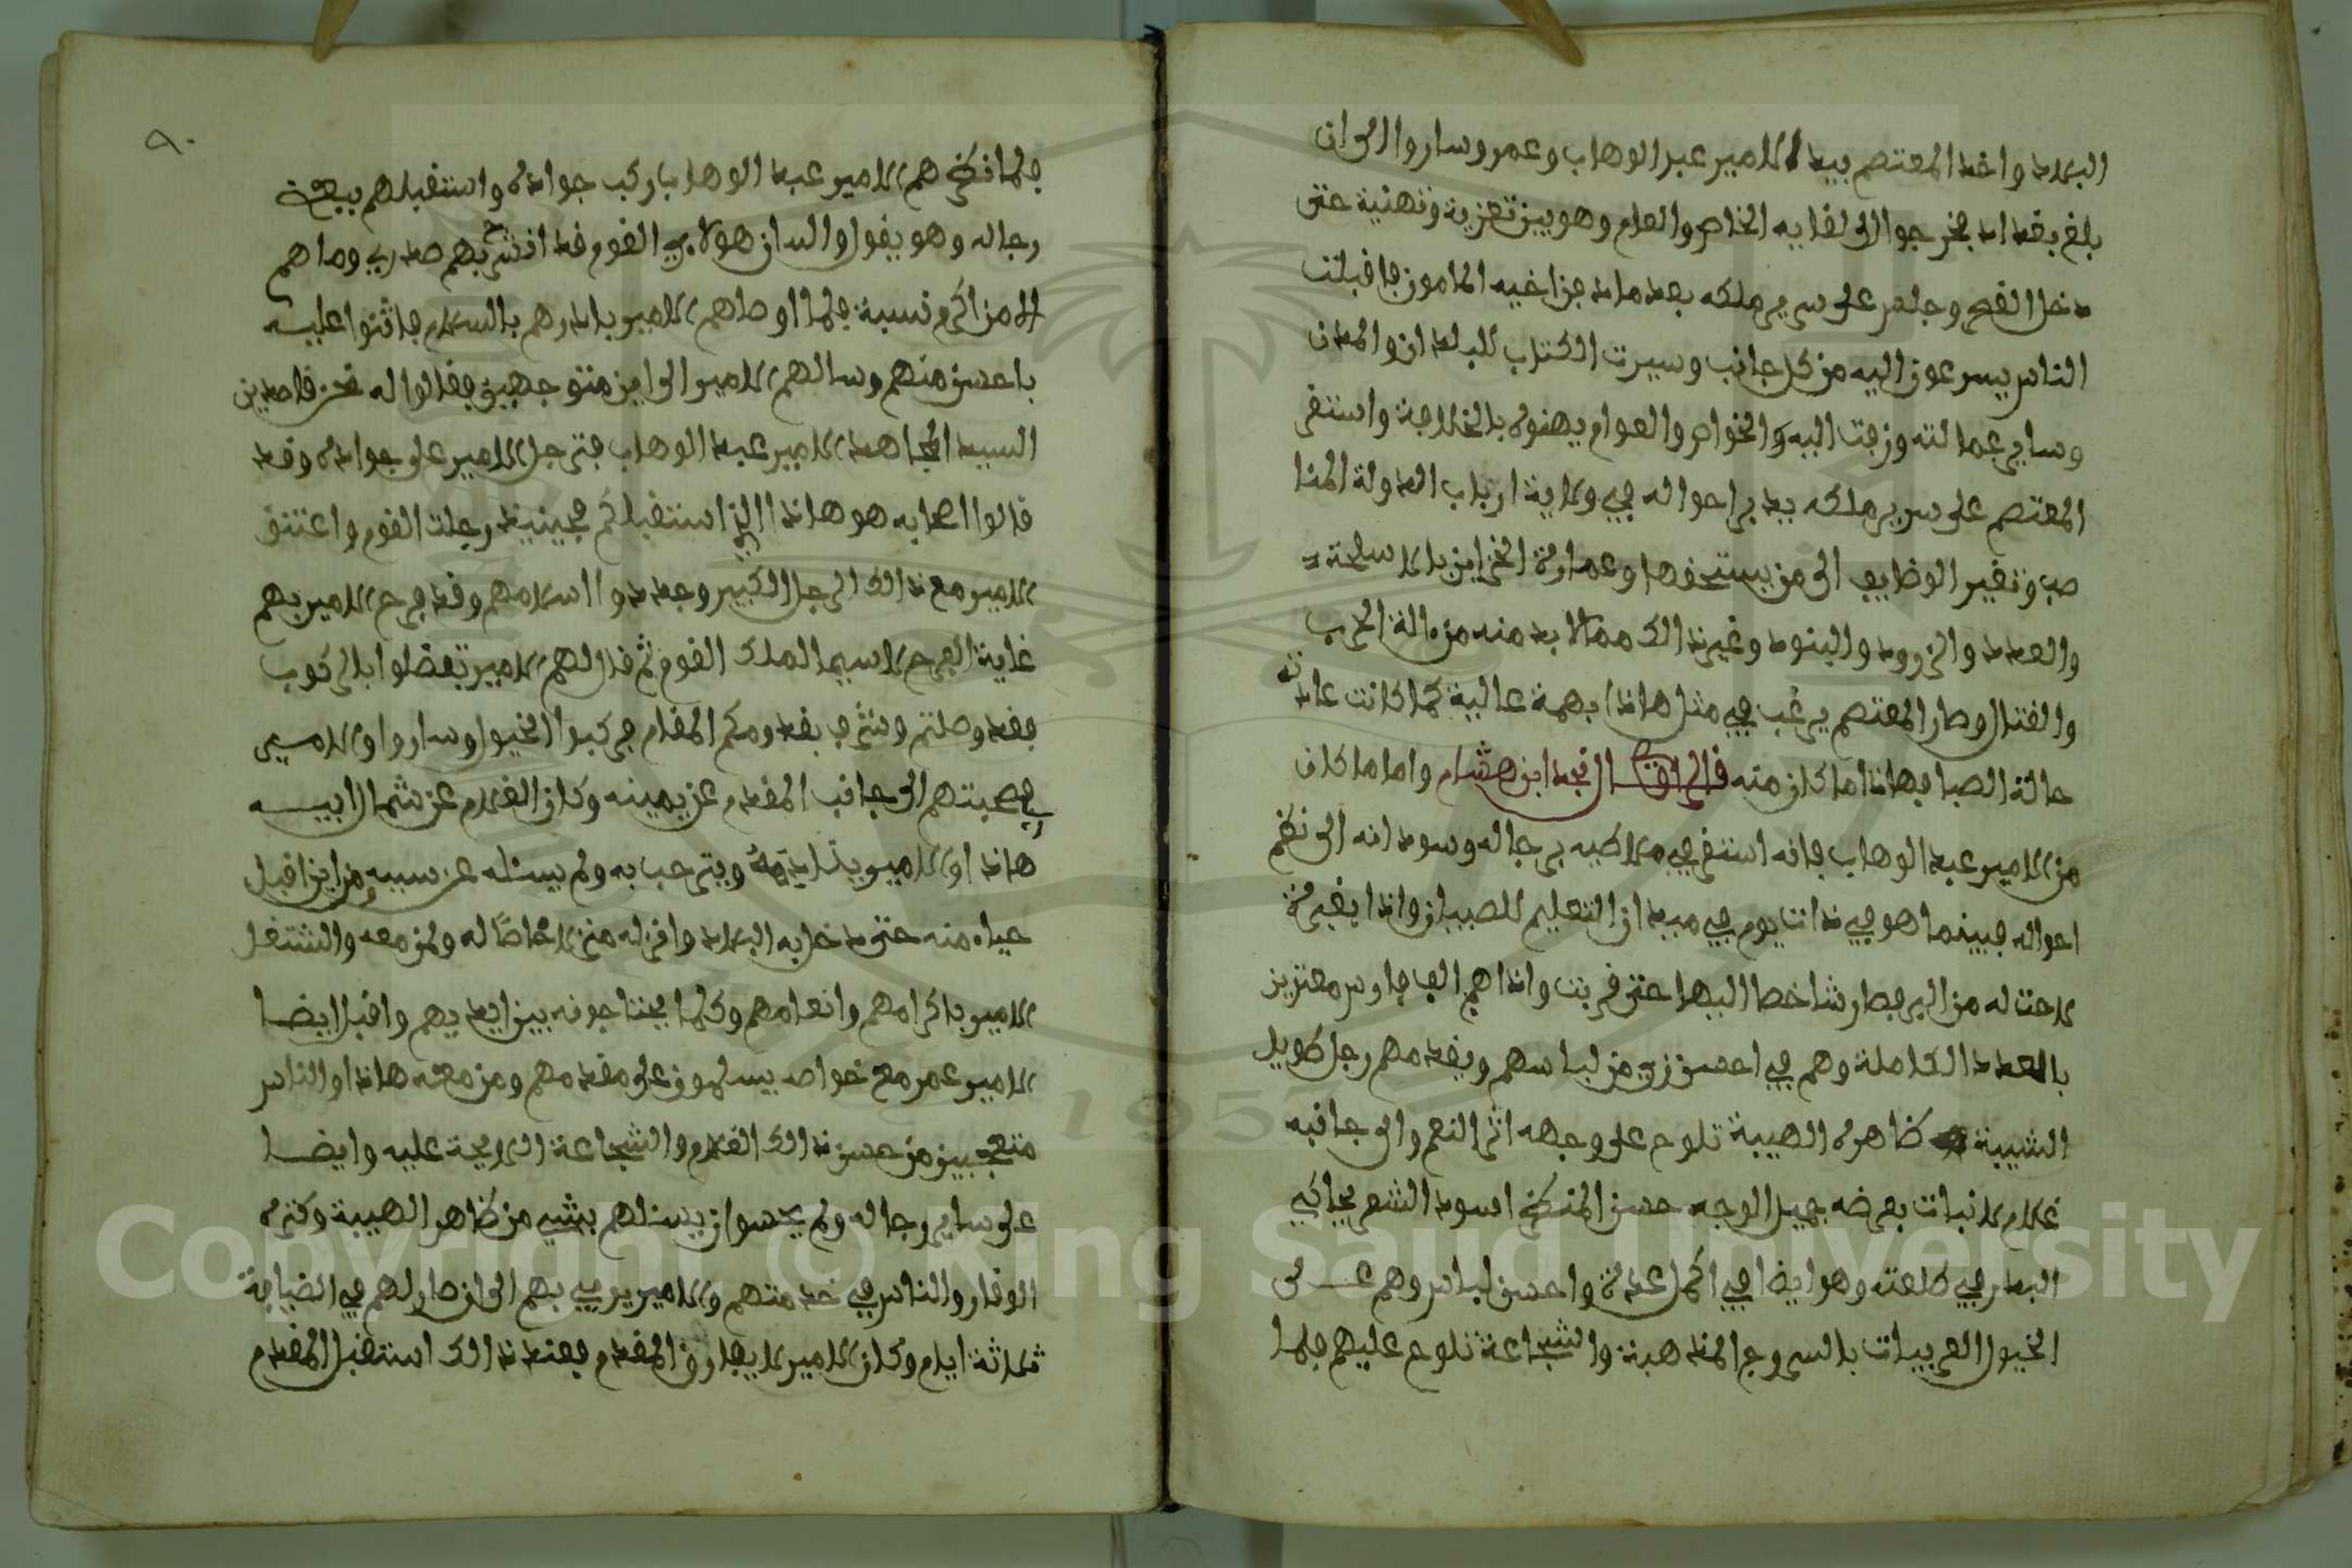 البلاد واخذ المعتصم بيد الامير عبد الوهاب وعمر وساروا الى ان
بلغ بغداد فخرجوا الى لقايه الخاص والعام وهو بين تعزية وتهنية حتى
دخل القصر وجلس على سرير ملكه بعد مامات من اخيه المامون فاقبلت
الناس يسرعون اليه من كل جانب وسيرت الكتاب للبلدان والمدن
وساير عمالته وزفت اليه والخواص والعوام يهنوه بالخلافة واستقر
المعتصم على سرير ملكه يدبر احواله في ولاية ارباب الدولة المنا
صب وتغير الوظايف الى من يستحقها وعمارة الخزاين بالاسلحة
والعدد والزرود والبنود وغير ذالك ممالا بد منه من الة الحرب
والقتال وصار المعتصم يرغب في مثل هاذا بهمة عالية كما كانت عادته
حالة الصبا فهاذا ما كان منه قال الراوي نجد ابن هشام واما ما كان
من الامير عبد الوهاب فانه استقر في ملاطيه برجاله وسودانه الى نظم
احواله فبينما هو في ذات يوم في ميدان التعليم للصبيان واذا بغبرة
لاحت له من البر فصار شاخصا اليها حتى قربت واذاهم الف فارس معتزين
بالعدد الكاملة وهم في احسن زي من لباسهم ويقدمهم رجل طويل
الشيبة ظاهره الهيبة تلوح على وجهه اثر النعم والى جانبه
غلام لا نبات بعرضه جميل الوجه حسن المنظر اسود الشعر يحاكي
البدر في طلعته وهو ايضا في اكمل عدة واحسن لباس وهم على
الخيول العربيات بالسروج المذهبة والشجاعة تلوح عليهم فلما
٩٠
فلما نظرهم الامير عبد الوهاب ركب جواده واستقبلهم ببعض
رجاله وهو يقول والله ان هولاء القوم قد انشرح بهم صدري وما هم
الا من اكرم نسبة فلما اوصاهم الامير بادرهم بالسلام فاثنوا عليه
باحسن منهم وسالهم الامير الى اين متوجهين فقالوا له نحن قاصدين
السيد المجاهد الامير عبد الوهاب فترجل الامير على جواده وقد
قالوا اصحابه هو هاذا الذي استقبلكم فحينيذ رجلت القوم واعتنق
الامير مع ذالك الرجل الكبير وجددوا اسلامهم وقد فرح الامير بهم
غاية الفرح لاسيما الملك القوم ثم قال لهم الامير تفضلوا بالركوب
فقد وصلتم ونتشرف بقدومكم المقام فركبوا الخيول وساروا والامير
في صحبتهم الى جانب المقدم عن يمينه وكان الغلام عن شمال ابيه
هاذا والامير يتادمه ويترحب به ولم يسئله عن سببه ومن اين اقبل
حياء منه حتى دخل به البلاد وانزله منزلا خاصا له ولمن معه واشتغل
الامير باكرامهم وانعامهم وكلما يحتاجونه بين ايديهم واقبل ايضا
الامير عمر مع خواصه يسلمون على مقدمهم ومن معه هاذا والناس
متعجبين من حسن ذالك الغلام والشجاعة اللايحة عليه وايضا
على ساير رجاله ولم يحسوا ان يسئلهم بشي من ظاهر الهيبة وكثرة
الوقار والناس في خدمتهم والامير يرحب بهم الى ان صار لهم في الضيافة
ثلاثة ايام وكان الامير لا يفارق المقدم فعند ذالك استقبل المقدم
Copyright © King Saud University
1957